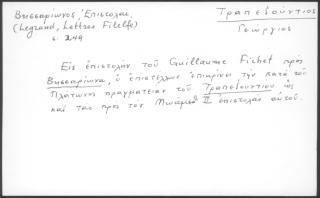 Βησσαρίωνος, Ἐπιστολαί,
(Legrand, Lettres Filelfe)
σ. 249
Τραπεζούντιος
Γεώργιος
Εἰς ἐπιστολὴν τοῦ Guillaume Fichet πρὸς
Βησσαρίωνα, ὁ ἐπιστέλλων ἐπικρίνει τὴν κατὰ τοῦ
Πλάτωνος πραγματείαν τοῦ Τραπεζουντίου ὡς
καὶ τὰς πρὸς τὸν Μωαμὲθ II ἐπιστολὰς αὐτοῦ.